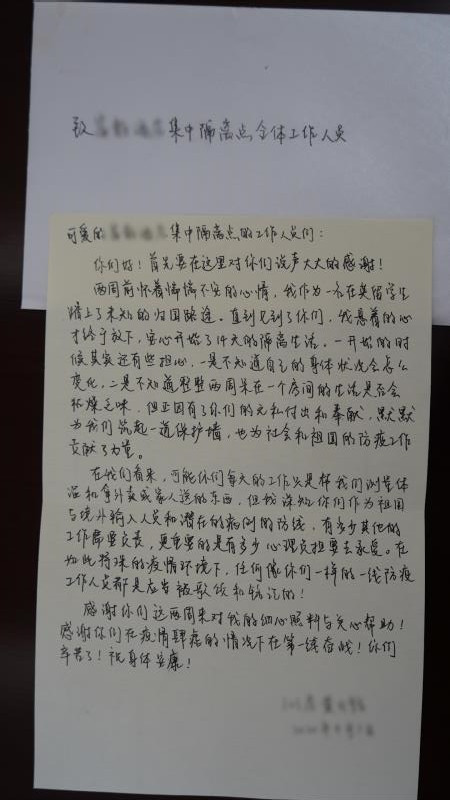 致 集中隔离点全体工作人员
可爱的 集中隔离点的工作人员们：
你们好！首先要在这里对你们说声大大的感谢！
两周前怀着惴惴不安的心情，我作为一名在英留学生
踏上了未知的归国路途。直到见到了你们，我悬着的心
才终于放下，安心开始了14天的隔离生活。一开始的时
候其实还有些担心，一是不知道自己的身体状况会怎么
变化，二是不知道整整两周呆在一个房间的生活是否会
枯燥乏味，但正因有了你们的无私付出和奉献，默默
为我们筑起一道保护墙，也为社会和祖国的防疫工作
贡献了力量。
在我们看来，可能你们每天的工作只是帮我们测量体
温和拿外卖或家人送的东西，但我深知你们作为祖国
与境外输入人员和潜在的病例的防线，有多少其他的
工作需要完成，更重要的是有多少心理负担要去承受。在
如此特殊的疫情环境下，任何像你们一样的一线防疫
工作人员都是应当被歌颂和铭记的！
感谢你们这两周来对我的细心照料与关心帮助！
感谢你们在疫情肆虐的情况下在第一线奋战！你们
辛苦了！祝身体安康！